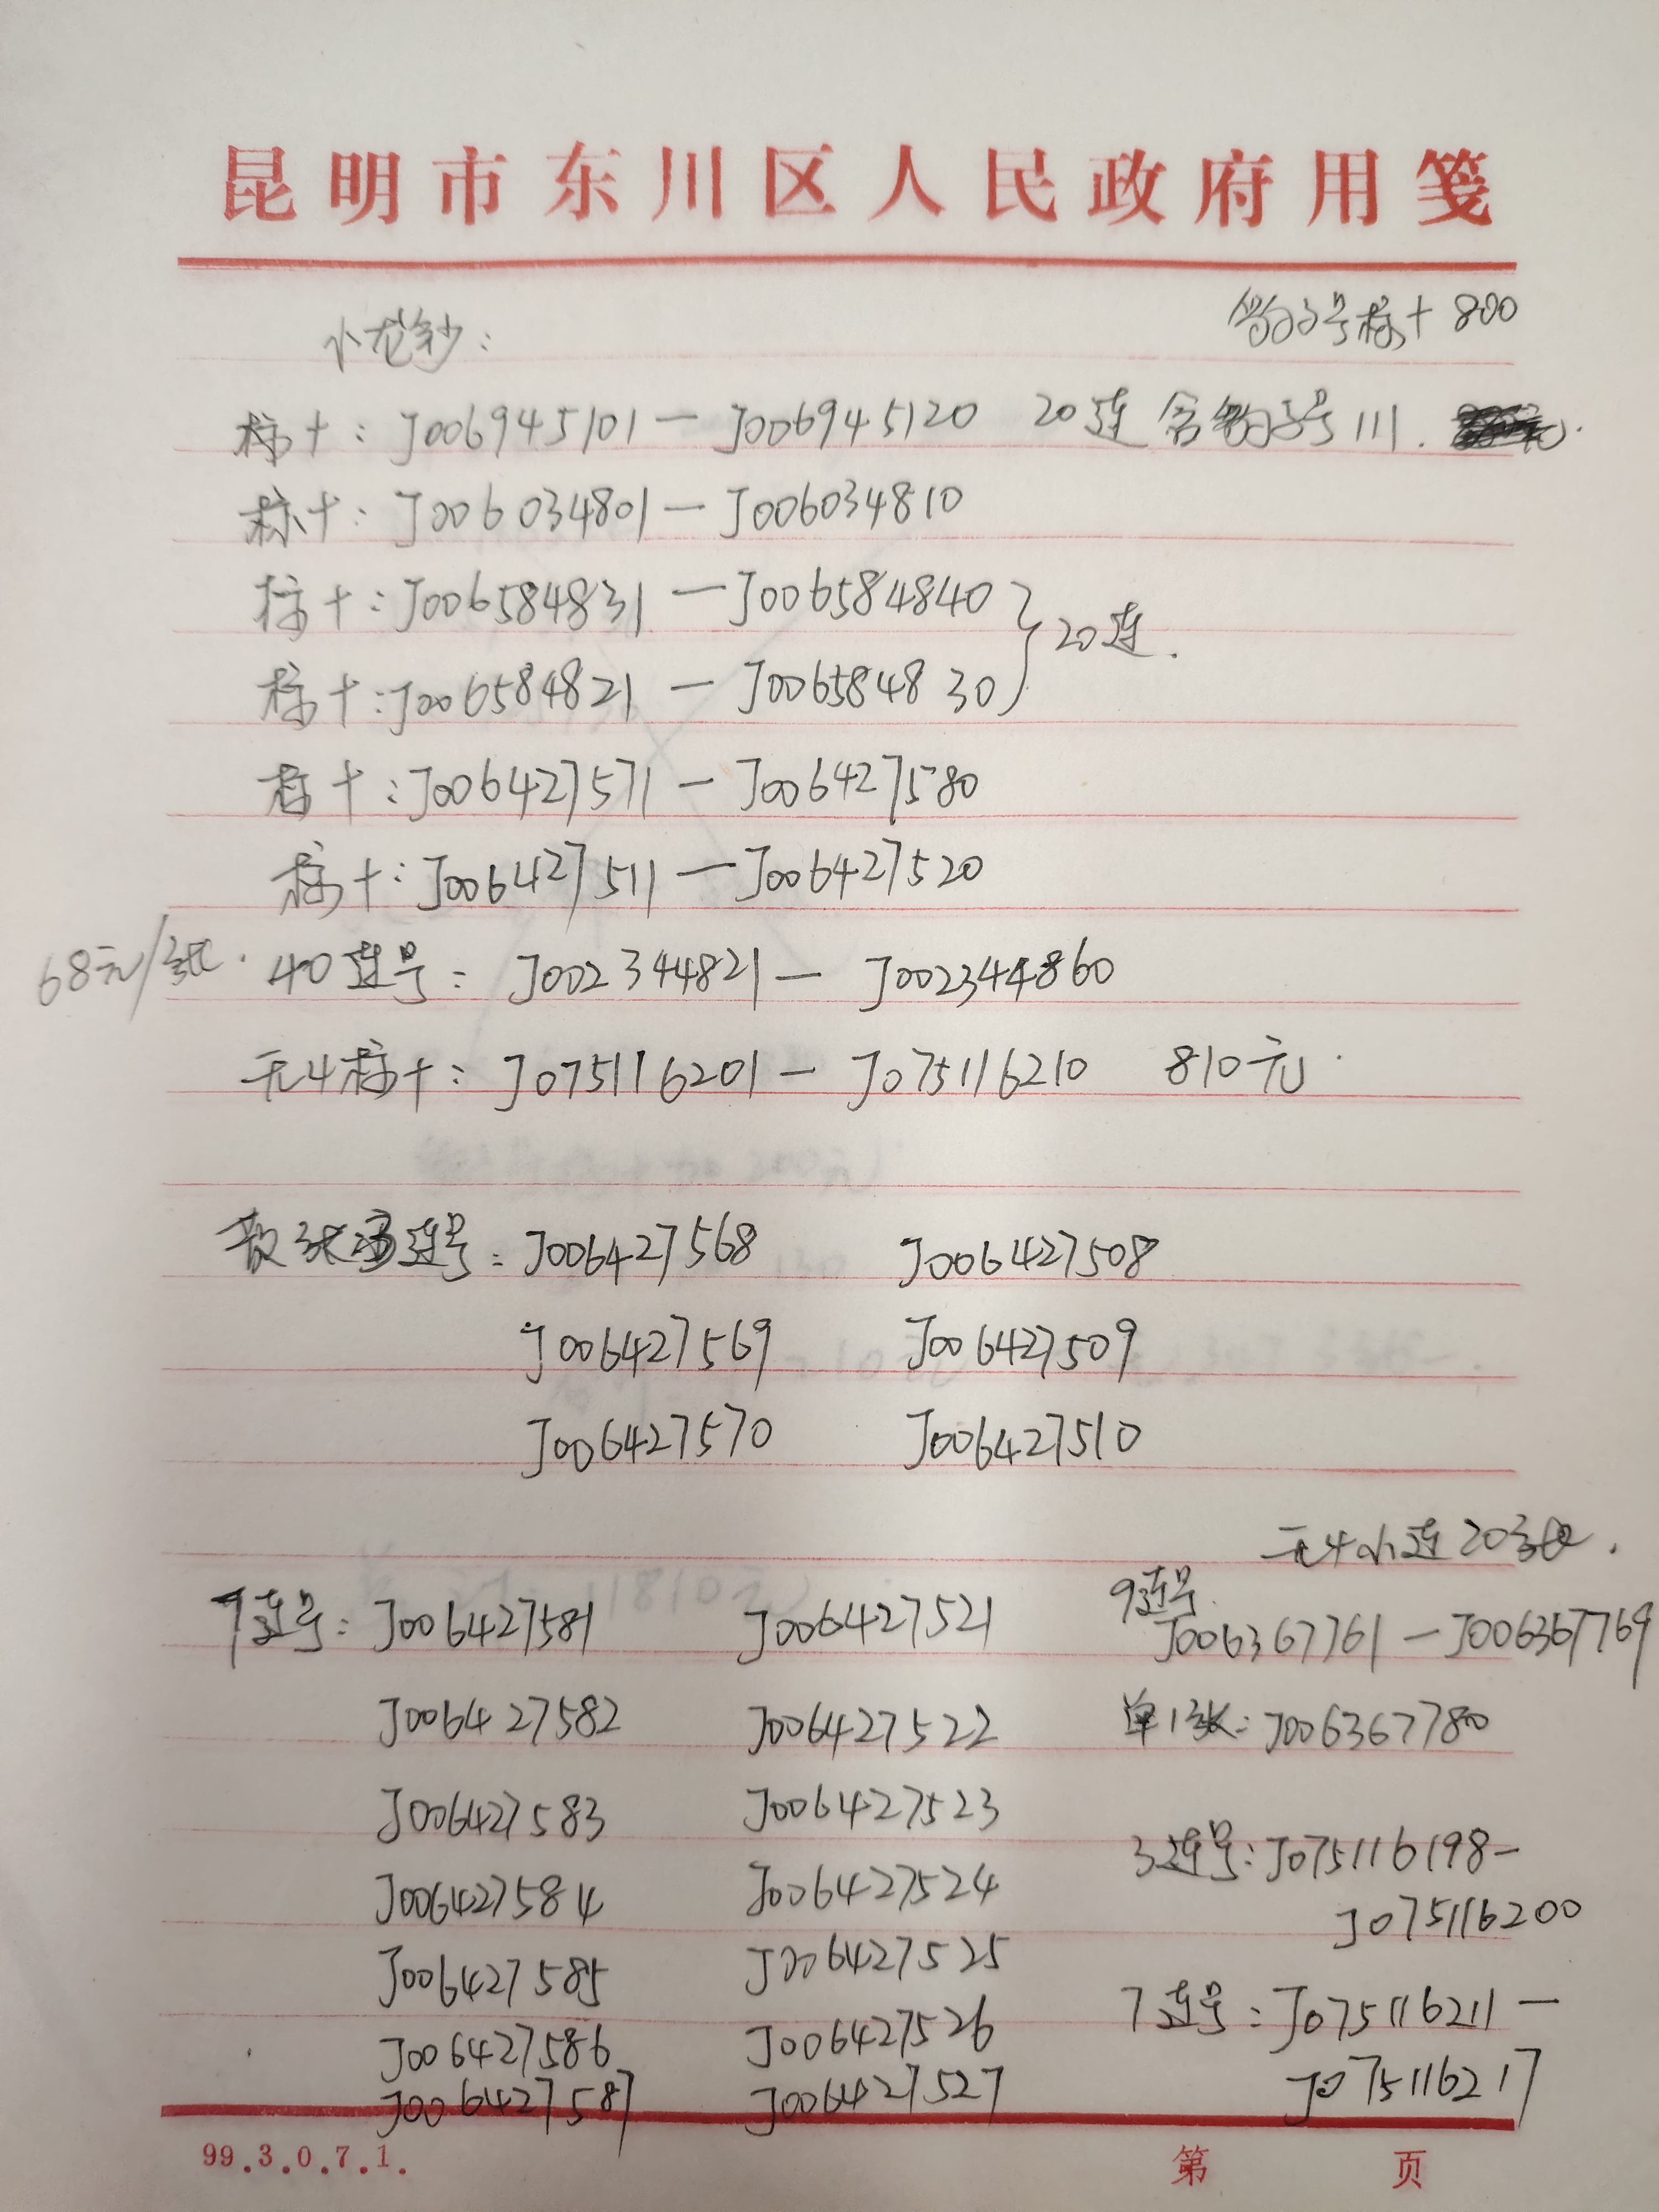 昆明市东川区人民政府用笺
小龙钞：
豹子号标十 800
标十：J006945101－J006945120 20连 含豹子号111.
标十：J006034801－J006034810
标十：J006584831－J006584840
20连.
标十：J006584821－J006584830
标十：J006427571－J006427580
标十：J006427511－J006427520
68元/张. 40连号：J002344821－J002344860
无4标十：J075116201－J075116210 810元.
散张 连号：J006427568 J006427508
J006427569 J006427509
J006427570 J006427510
无4小连20张.
7连号：J006427581 J006427521 9连号 J006367761－J006367769
J006427582 J006427522 单1张：J006367780
J006427583 J006427523
3连号：J075116198－
J006427584 J006427524
J075116200
J006427585 J006427525
7连号：J075116211－
J006427586 J006427526
J006427587 J006427527 J075116217
99.3.0.7.1. 第 页